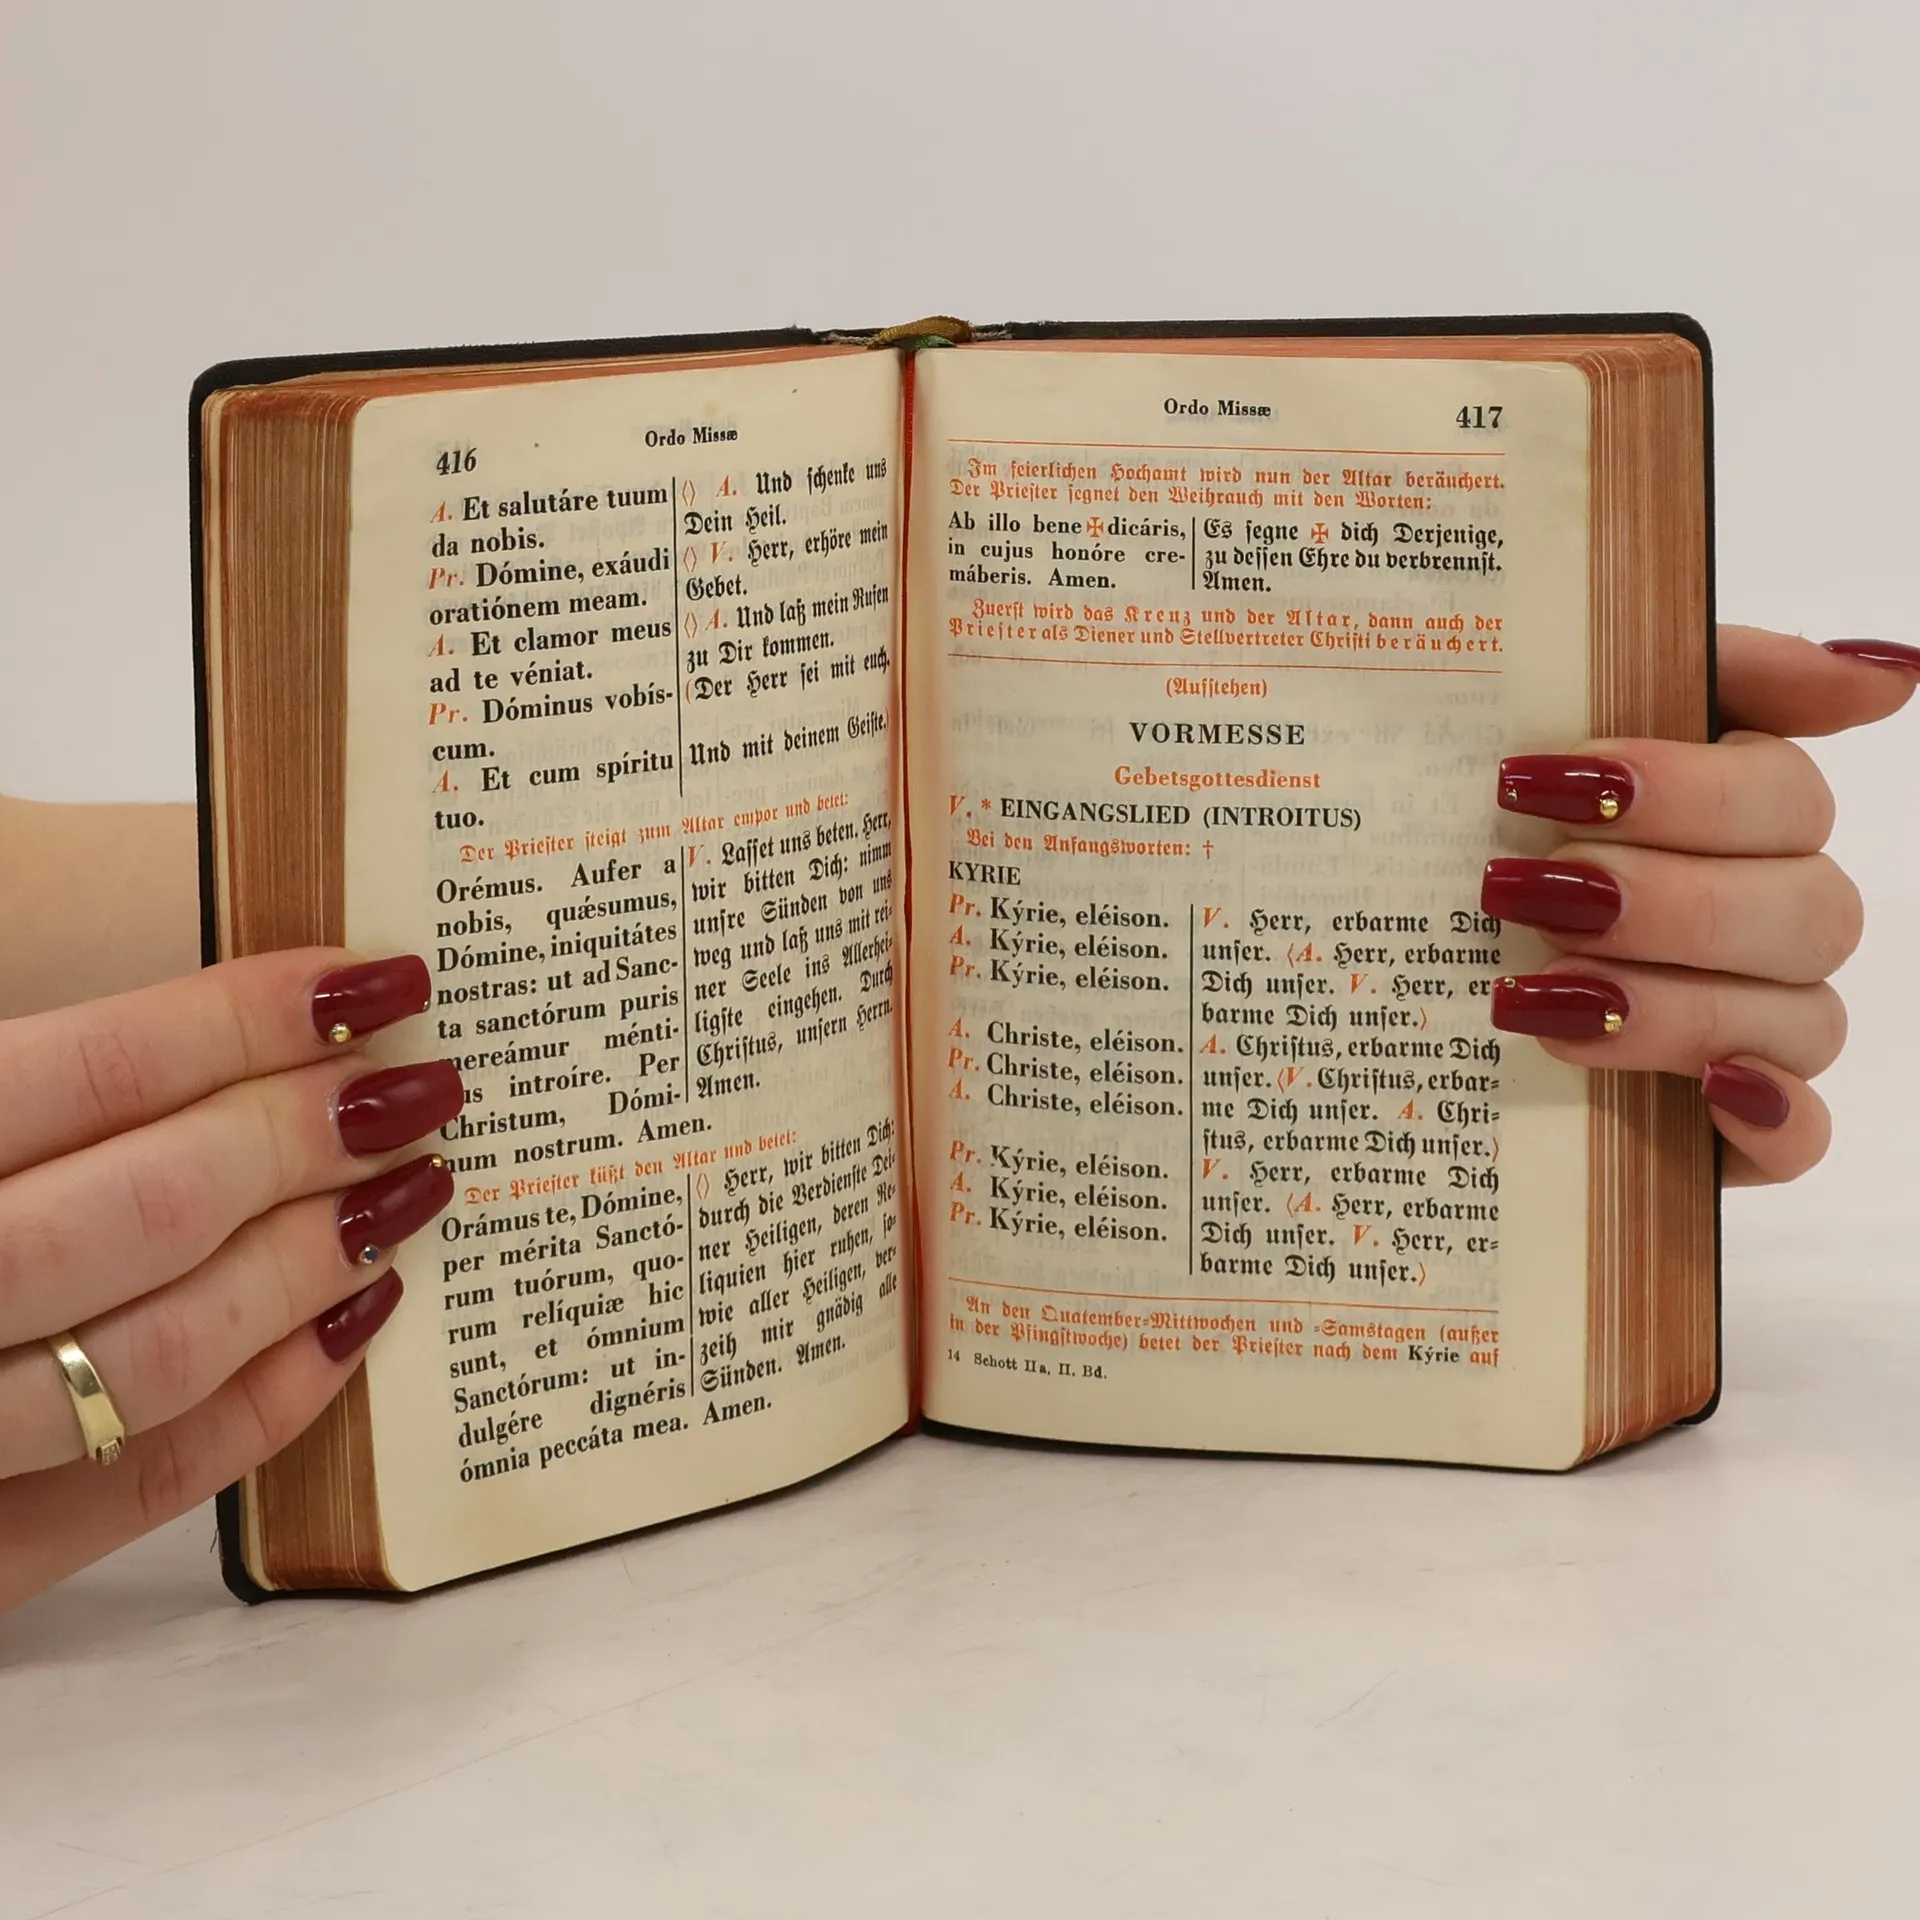 416
Ordo Missæ
A. Et salutáre tuum
da nobis.
Pr. Dómine, exáudi
oratiónem meam.
A. Et clamor meus
ad te véniat.
Pr. Dóminus vobís-
cum.
A. Et cum spíritu
tuo.
⟨⟩ A. Und ſchenke uns
Dein Heil.
⟨⟩ V. Herr, erhöre mein
Gebet.
⟨⟩ A. Und laß mein Rufen
zu Dir kommen.
(Der Herr ſei mit euch.
Und mit deinem Geiſte.)
Der Prieſter ſteigt zum Altar empor und betet:
Orémus. Aufer a
nobis, quǽsumus,
Dómine, iniquitátes
nostras: ut ad Sanc-
ta sanctórum puris
mereámur ménti-
us introíre. Per
Christum, Dómi-
num nostrum. Amen.
V. Laſſet uns beten. Herr,
wir bitten Dich: nimm
unſre Sünden von uns
weg und laß uns mit rei-
ner Seele ins Allerhei-
ligſte eingehen. Durch
Chriſtus, unſern Herrn.
Amen.
Der Prieſter küßt den Altar und betet:
Orámus te, Dómine,
per mérita Sanctó-
rum tuórum, quo-
rum relíquiæ hic
sunt, et ómnium
Sanctórum: ut in-
dulgére dignéris
ómnia peccáta mea. Amen.
⟨⟩ Herr, wir bitten Dich:
durch die Verdienſte Dei-
ner Heiligen, deren Re-
liquien hier ruhen, ſo-
wie aller Heiligen, ver-
zeih mir gnädig alle
Sünden. Amen.
Ordo Missæ
417
Im feierlichen Hochamt wird nun der Altar beräuchert.
Der Prieſter ſegnet den Weihrauch mit den Worten:
Ab illo bene✠dicáris,
in cujus honóre cre-
máberis. Amen.
Es ſegne ✠ dich Derjenige,
zu deſſen Ehre du verbrennſt.
Amen.
Zuerſt wird das Kreuz und der Altar, dann auch der
Prieſter als Diener und Stellvertreter Chriſti beräuchert.
(Aufſtehen)
VORMESSE
Gebetsgottesdienst
V. * EINGANGSLIED (INTROITUS)
Bei den Anfangsworten: †
KYRIE
Pr. Kýrie, eléison.
A. Kýrie, eléison.
Pr. Kýrie, eléison.
A. Christe, eléison.
Pr. Christe, eléison.
A. Christe, eléison.
Pr. Kýrie, eléison.
A. Kýrie, eléison.
Pr. Kýrie, eléison.
V. Herr, erbarme Dich
unſer. ⟨A. Herr, erbarme
Dich unſer. V. Herr, er-
barme Dich unſer.⟩
A. Chriſtus, erbarme Dich
unſer. ⟨V. Chriſtus, erbar-
me Dich unſer. A. Chri-
ſtus, erbarme Dich unſer.⟩
V. Herr, erbarme Dich
unſer. ⟨A. Herr, erbarme
Dich unſer. V. Herr, er-
barme Dich unſer.⟩
An den Quatember-Mittwochen und -Samstagen (außer
in der Pfingſtwoche) betet der Prieſter nach dem Kýrie auf
14 Schott IIa, II. Bd.